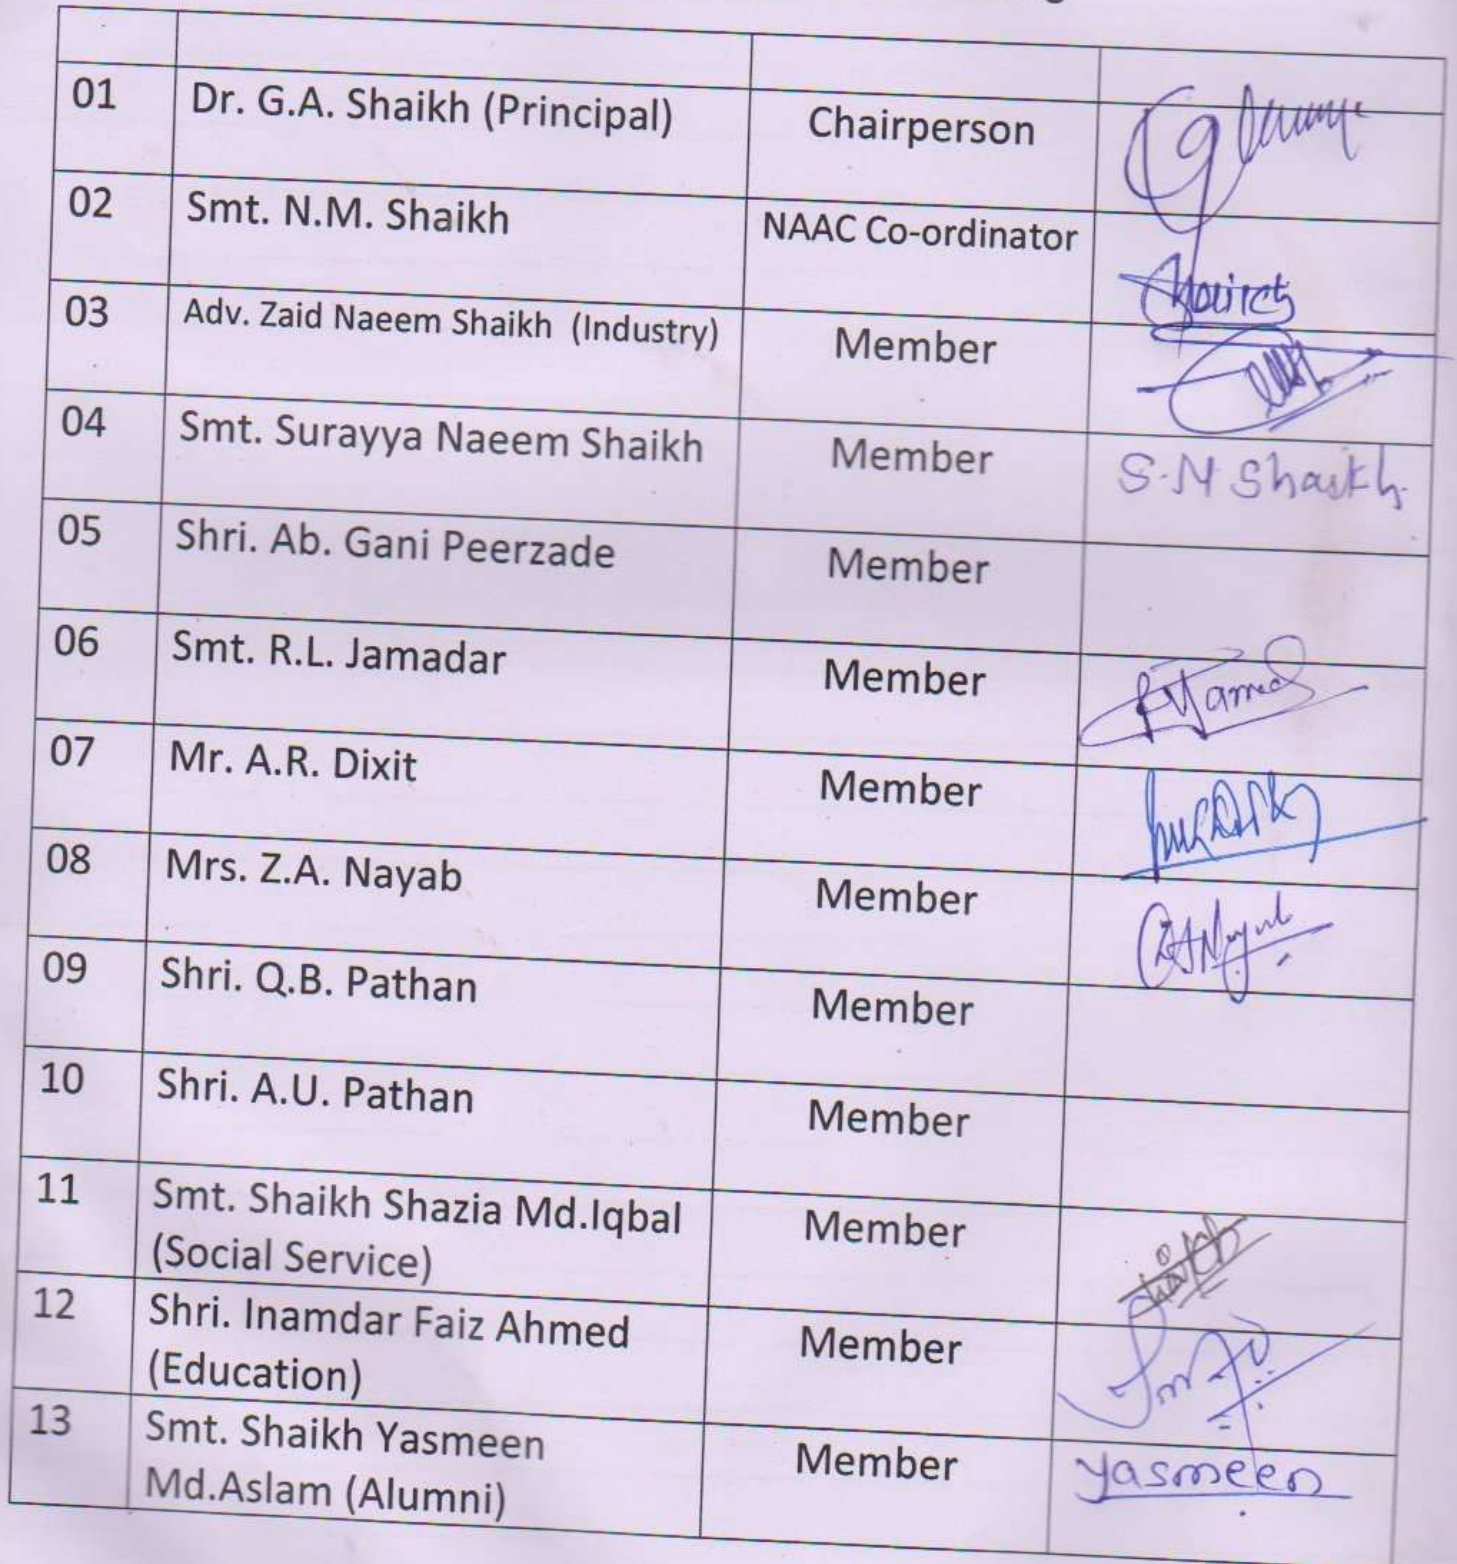 01 Dr. G.A. Shaikh (Principal) Chairperson
02 Smt. N.M. Shaikh NAAC Co-ordinator
03 Adv. Zaid Naeem Shaikh (Industry) Member
04 Smt. Surayya Naeem Shaikh Member S.N Shaikh
05 Shri. Ab. Gani Peerzade Member
06 Smt. R.L. Jamadar Member
07 Mr. A.R. Dixit Member
08 Mrs. Z.A. Nayab Member ZANayab
09 Shri. Q.B. Pathan Member
10 Shri. A.U. Pathan Member
11 Smt. Shaikh Shazia Md.Iqbal Member
(Social Service)
12 Shri. Inamdar Faiz Ahmed Member
(Education)
13 Smt. Shaikh Yasmeen Member Yasmeen
Md.Aslam (Alumni)